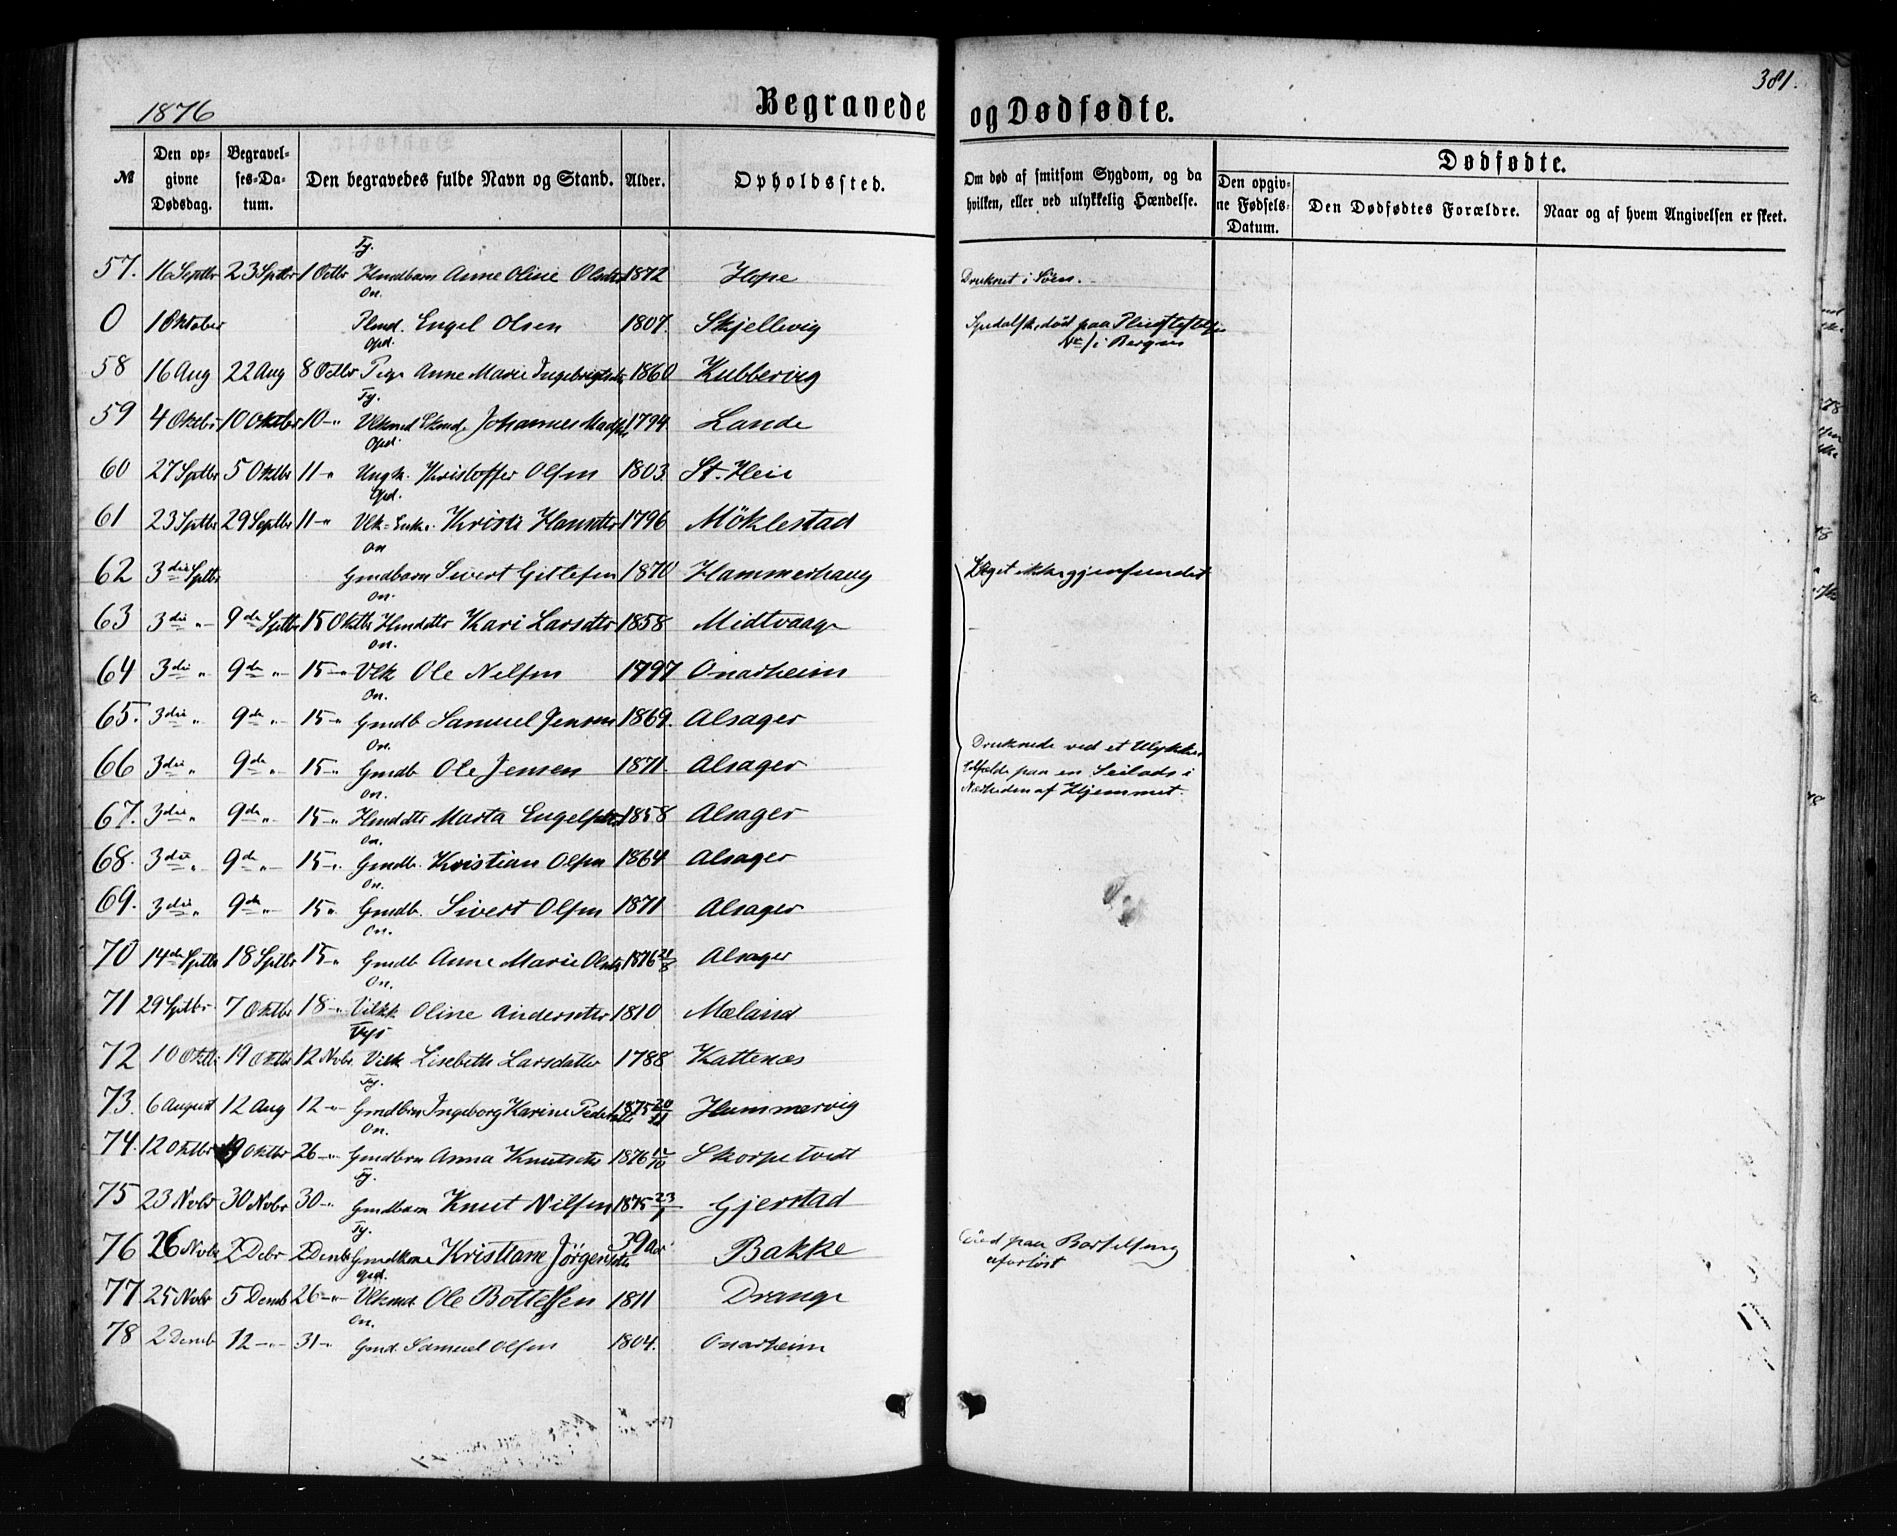 381.
1876
Begravede og Dødfødte.
№
Den opgivne Dødsdag.
Begravelses-Datum.
Den begravedes fulde Navn og Stand.
Alder.
Opholdssted.
Om død af smitsom Sygdom, og da hvilken, eller ved ulykkelig Hændelse.
Dødfødte.
Den opgivne Fødsels-Datum.
Den Dødfødtes Forældre.
Naar og af hvem Angivelsen er skeet.
Ty.
57. 16 Septbr 23 Sptbr 1 Octbr Anne Oline Olsdtr 1872 Hope Druknet i Søen.
On.
0 1 Oktober Engel Olsen 1807. Skjellevig død paa i Bergen
Opd.
58 16 Aug 22 Aug 8 Octbr Pige Anne Marie Ingebrigtsdtr 1860 Kubbervig
Ty.
59 4 Oktbr 10 Oktbr 10 -"- Johannes 1794. Lande
Opd.
60 27 Sptbr 5 Oktbr 11 -" Ungk. Kristoffer Olsen 1803. St. Heie
Opd.
61 23 Sptbr 29 Septbr 11 -" Vlk-Enke. Kristi Hansdtr 1796 Möklestad
On
62 3die Sptbr Gmdbarn Sivert Gittlesen 1870 Hammerhaug Liget ikke gjenfundet
On.
63 3die -"- 9de Sptbr 15 Oktbr Hmddtr Kari Larsdtr 1858 Midtvaage
On.
64 3die " 9de -"- 15 -"- Vlk Ole Nilsen 1797 Onarheim
On.
65. 3die " 9de -"- 15 -" Gmdb Samuel Jensen 1869. Alsager
On.
66 3die " 9de " 15 -" Gmdb Ole Jensen 1871. Alsager Druknede ved et Ulykkes
Tilfælde paa en Seilads i
Nærheden af Hjemmet.
On.
67. 3die " 9de " 15 -" Hmddtr Marta Engelsdtr 1858 Alsager
On.
68. 3die " 9de -"- 15 -" Gmdb. Kristian Olsen 1864 Alsager
On.
69. 3die " 9de " 15 " Gmdb. Sivert Olsen 1871 Alsager
On.
70 14de Sptbr 18 Sptbr 15 -" Gmdb Anne Marie Olsdtr 1876 21/8 Alsager
On.
71 29 Sptbr 7 Oktbr 18 -" Oline Andersdtr 1810 Mæland
Tys
72 10 Oktbr 19 Oktbr 12 Novbr Lisebeth Larsdatter 1788 Kattenæs
Ty.
73. 6 August 12 Aug 12 -"- Gmdbrn Ingeborg Karine Pedersdtr 1875 20/11 Hammervig
On.
74. 12 Oktbr 19 Oktbr 26 -"- Gmdbrn Anna Knutsdtr 1876 Skorpetvedt
Ty.
75 23 Novbr 30 Novbr 30 -" Gmdbarn Knut Nilsen 1875 Gjerstad
Ty.
76 26 Novbr 2 Debr 2 Dembr Gmdkone Kristiane Jörgensdtr 39 Aar Bakke Död paa Barselseng
uforløst
Opd.
77 25 Novbr 5 Demb 26 -"- Vlkmd. Ole Bottelsen 1811 Drange
On.
78 2 Demb 12 -"- 31 -" Gmd. Samuel Olsen 1804. Onarheim